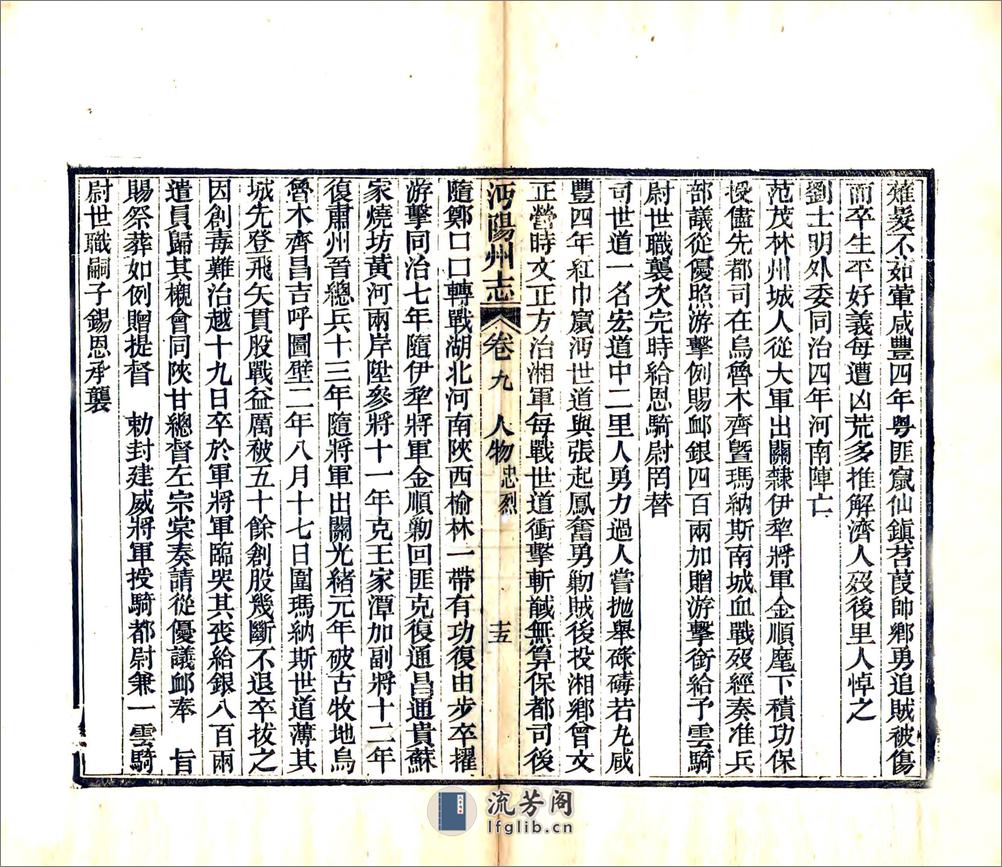 薙髮不茹葷咸豐四年粵匪竄仙鎮苕茛帥鄉勇追賊被傷
而卒生平好義每遭凶荒多推解濟人歿後里人悼之
劉士明外委同治四年河南陣亡
范茂林州城人從大軍出關隸伊犂將軍金順麾下積功保
授儘先都司在烏魯木齊暨瑪納斯南城血戰歿經奏准兵
部議從優照游擊例賜卹銀四百兩加贈游擊銜給予雲騎
尉世職襲次完時給恩騎尉罔替
司世道一名宏道中二里人勇力過人嘗拋舉碌碡若丸咸
豐四年紅巾竄沔世道與張起鳳奮勇勦賊後投湘鄉曾文
正營時文正方治湘軍每戰世道衝擊斬馘無算保都司後
沔陽州志
卷九
人物忠烈
十五
隨鄭口口轉戰湖北河南陝西榆林一帶有功復由步卒擢
游擊同治七年隨伊犂將軍金順勦回匪克復通昌通貴蘇
家燒坊黃河兩岸陞參將十一年克王家潭加副將十二年
復肅州晉總兵十三年隨將軍出關光緒元年破古牧地烏
魯木齊昌吉呼圖壁二年八月十七日圍瑪納斯世道薄其
城先登飛矢貫股戰益厲被五十餘創股幾斷不退卒拔之
因創毒難治越十九日卒於軍將軍臨哭其喪給銀八百兩
遣員歸其櫬會同陝甘總督左宗棠奏請從優議卹奉　旨
賜祭葬如例贈提督　勅封建威將軍授騎都尉兼一雲騎
尉世職嗣子錫恩承襲
流芳阁
lfglib.cn